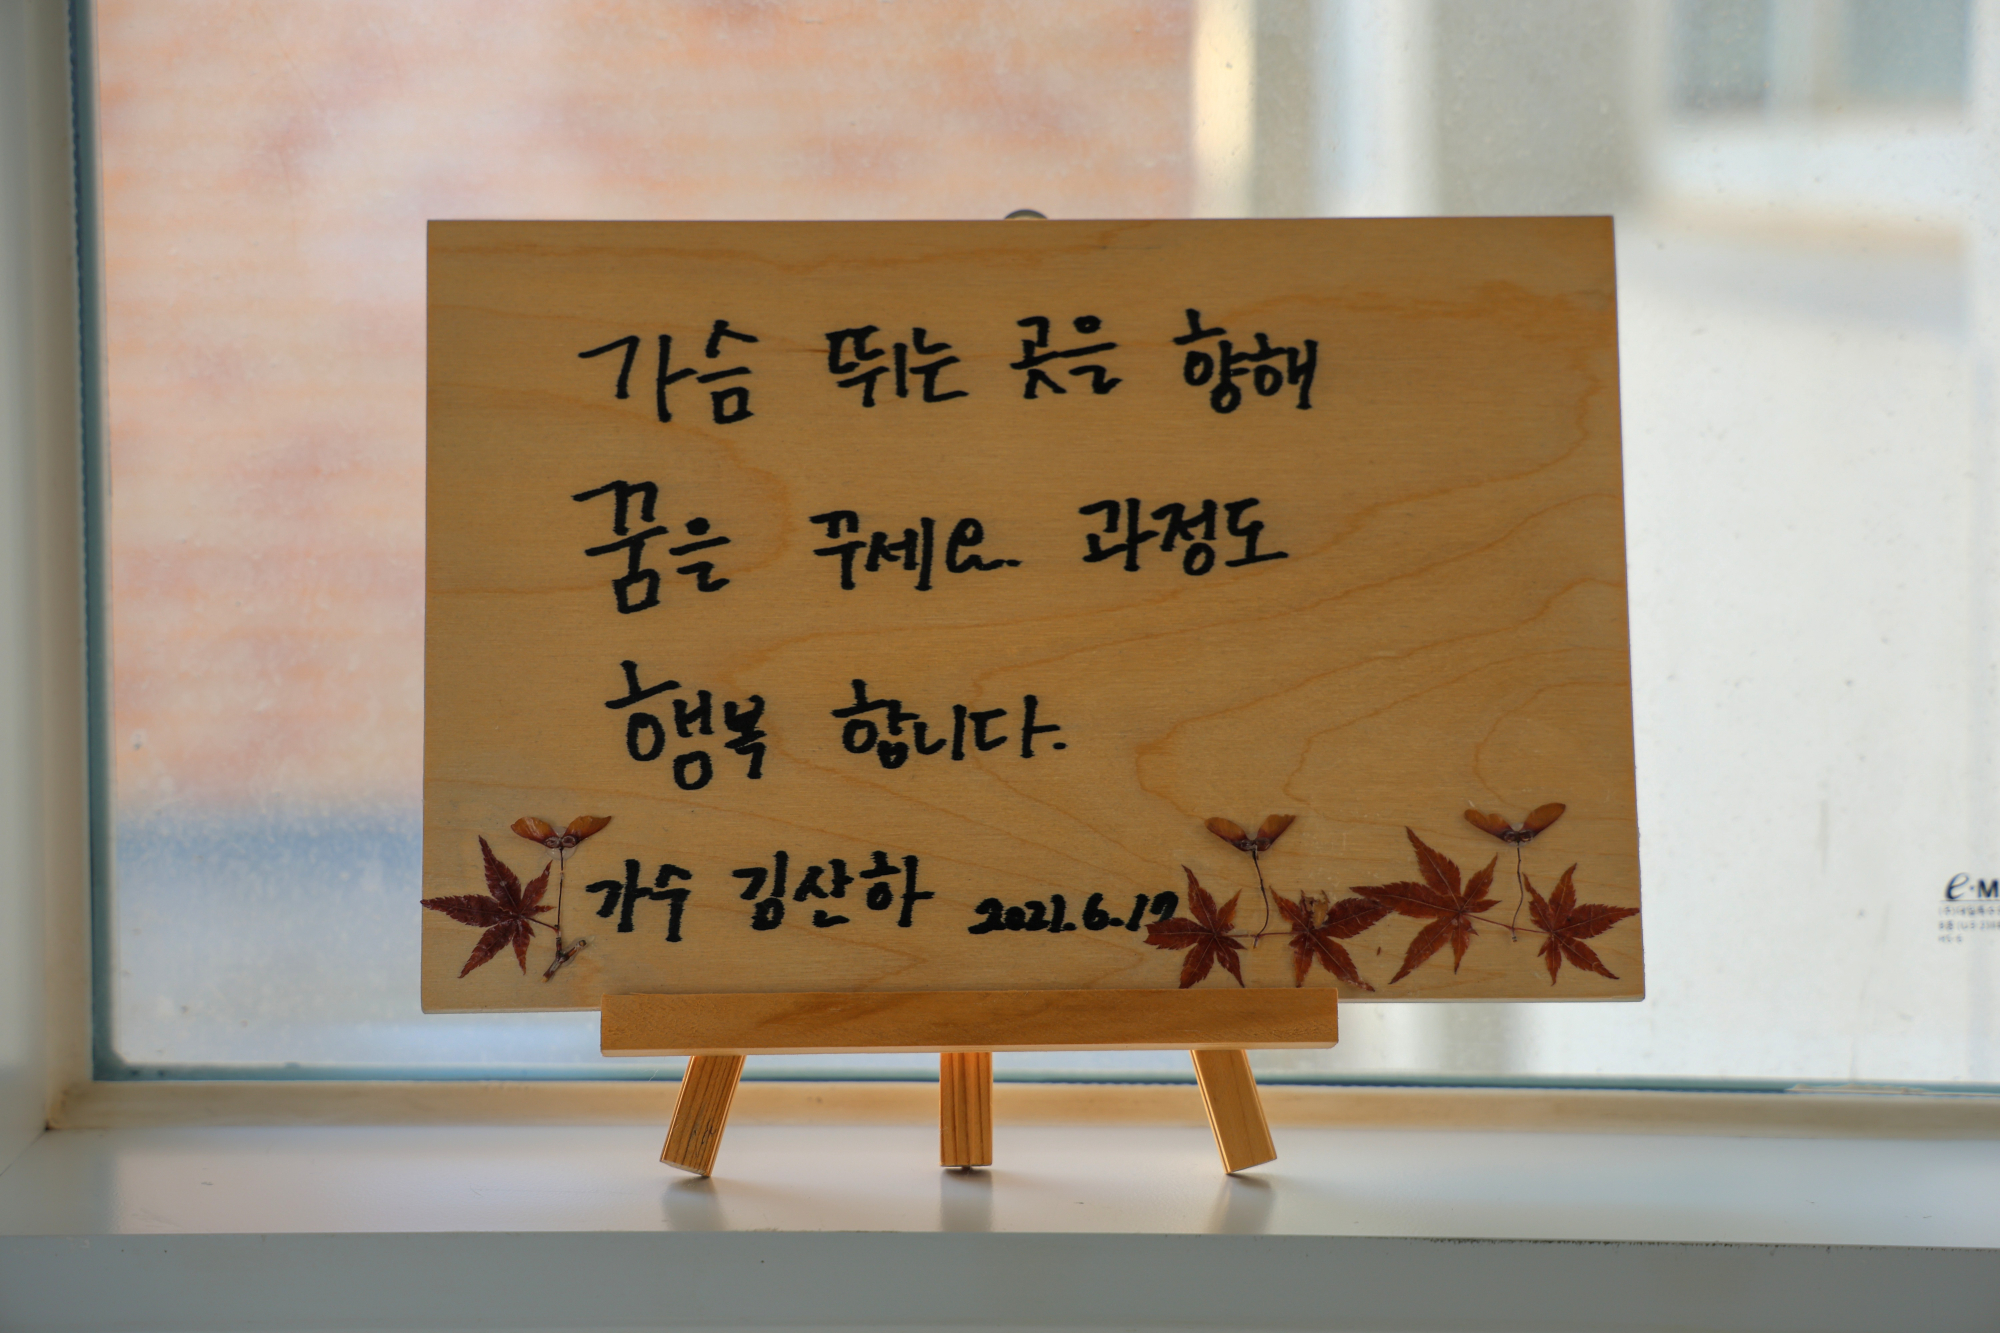 가슴 뛰는 곳을 향해
꿈을 꾸세요. 과정도
행복 합니다.
가수 김산하 2021.6.17
e·M